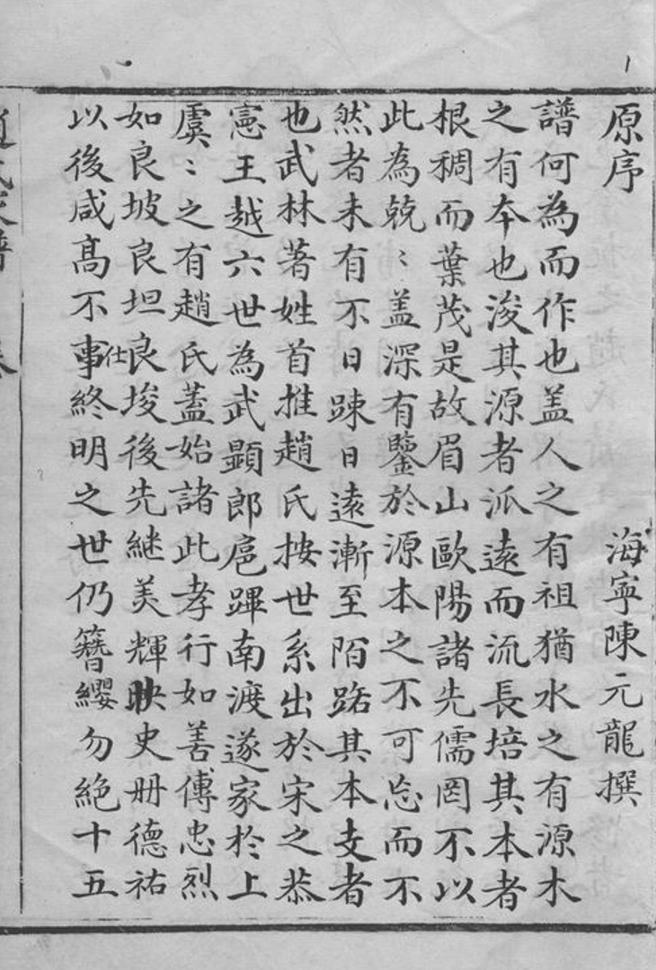 原序 海寧陳元龍撰
譜何為而作也盖人之有祖猶水之有源木
之有夲也浚其源者派遠而流長培其本者
根稠而葉茂是故眉山歐陽諸先儒罔不以
此為兢〻盖深有鑒於源本之不可忘而不
然者未有不日踈日遠漸至陌路其本支者
也武林著姓首推趙氏按世系出於宋之恭
憲王越六世為武顯郎扈蹕南渡遂家於上
虞〻之有趙氏蓋始諸此孝行如善傅忠烈
如良坡良坦良埈後先継美輝映史册德祐
以後咸高不事仕終明之世仍簪纓勿絕十五
趙氏家譜 卷